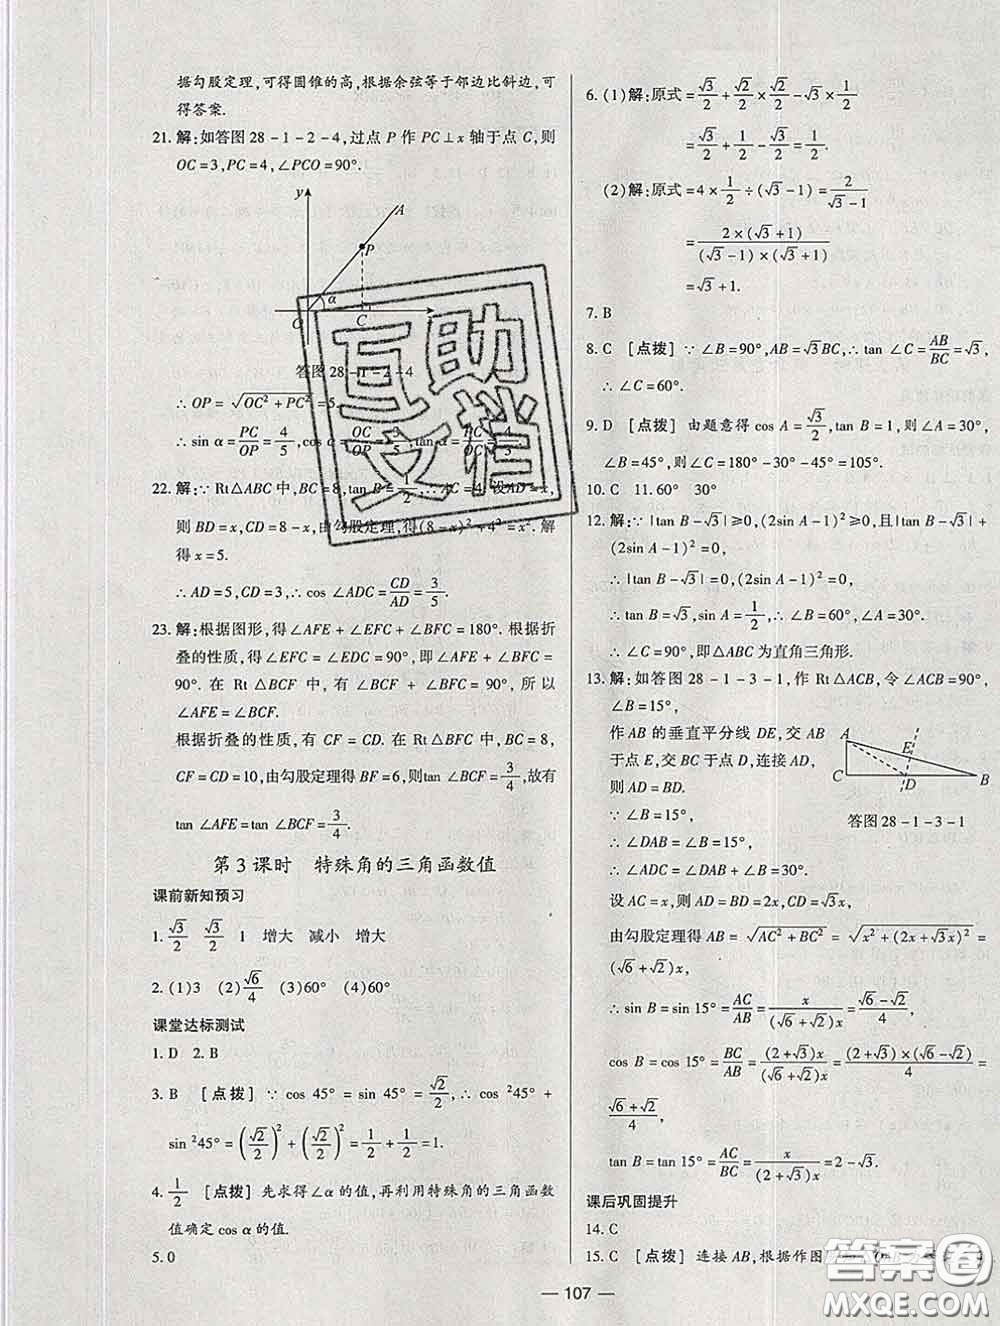 据勾股定理,可得圆锥的高,根据余弦等于邻边比斜边,可
得答案.
21. 解:如答图 28-1-2-4,过点 P 作 PC⊥x 轴于点 C,则
OC=3,PC=4,∠PCO=90°.
y
A
P
α
O
C
x
答图 28-1-2-4
∴ OP=√(OC²+PC²)=5.
∴ sin α=PC/OP=4/5,cos α=OC/OP=3/5,tan α=PC/OC=4/3.
22. 解:∵ Rt△ABC 中,BC=8,tan B=1/2,∴ AC=4. 设 AD=x,
则 BD=x,CD=8-x,由勾股定理,得(8-x)²+4²=x². 解
得 x=5.
∴ AD=5,CD=3,∴ cos ∠ADC=CD/AD=3/5.
23. 解:根据图形,得∠AFE+∠EFC+∠BFC=180°. 根据折
叠的性质,得∠EFC=∠EDC=90°,即∠AFE+∠BFC=
90°. 在 Rt△BCF 中,有∠BCF+∠BFC=90°,所以
∠AFE=∠BCF.
根据折叠的性质,有 CF=CD. 在 Rt△BFC 中,BC=8,
CF=CD=10,由勾股定理得 BF=6,则tan ∠BCF=3/4,故有
tan ∠AFE=tan ∠BCF=3/4.
第 3 课时 特殊角的三角函数值
课前新知预习
1. √3/2 √3/2 1 增大 减小 增大
2. (1)3 (2)√6/4 (3)60° (4)60°
课堂达标测试
1. D 2. B
3. B [点拨] ∵ cos 45°=sin 45°=√2/2,∴ cos ²45°+
sin ²45°=(√2/2)²+(√2/2)²=1/2+1/2=1.
4. 1/2 [点拨] 先求得∠α 的值,再利用特殊角的三角函数
值确定 cos α 的值.
5. 0
6. (1)解:原式=√3/2+√2/2×√2/2-√3×1/2
=√3/2+1/2-√3/2
=1/2.
(2)解:原式=4×1/2÷(√3-1)=2/(√3-1)
=2×(√3+1)/((√3-1)×(√3+1))
=√3+1.
7. B
8. C [点拨] ∵ ∠B=90°,AB=√3BC,∴ tan ∠C=AB/BC=√3,
∴ ∠C=60°.
9. D [点拨] 由题意得 cos A=√3/2,tan B=1,则∠A=30°,
∠B=45°,则∠C=180°-30°-45°=105°.
10. C 11. 60° 30°
12. 解:∵ |tan B-√3|≥0,(2sin A-1)²≥0,且|tan B-√3|+
(2sin A-1)²=0,
∴ |tan B-√3|=0,(2sin A-1)²=0,
∴ tan B=√3,sin A=1/2,∴ ∠B=60°,∠A=30°.
∴ ∠C=90°,即△ABC 为直角三角形.
13. 解:如答图 28-1-3-1,作 Rt△ACB,令∠ACB=90°,
∠B=15°,
作 AB 的垂直平分线 DE,交 AB
于点 E,交 BC 于点 D,连接 AD,
则 AD=BD.
∵ ∠B=15°,
∴ ∠DAB=∠B=15°,
∴ ∠ADC=∠DAB+∠B=30°.
A
E
C
D
B
答图 28-1-3-1
设 AC=x,则 AD=BD=2x,CD=√3x,
由勾股定理得 AB=√(AC²+BC²)=√(x²+(2x+√3x)²)=
(√6+√2)x,
∴ sin B=sin 15°=AC/AB=x/((√6+√2)x)=(√6-√2)/4,
cos B=cos 15°=BC/AB=(2+√3)x/((√6+√2)x)=(2+√3)×(√6-√2)/4=
(√6+√2)/4,
tan B=tan 15°=AC/BC=x/((2+√3)x)=2-√3.
课后巩固提升
14. C
15. C [点拨] 连接 AB,根据作图
互助
文档
— 107 —
答案圈
MXQE.COM